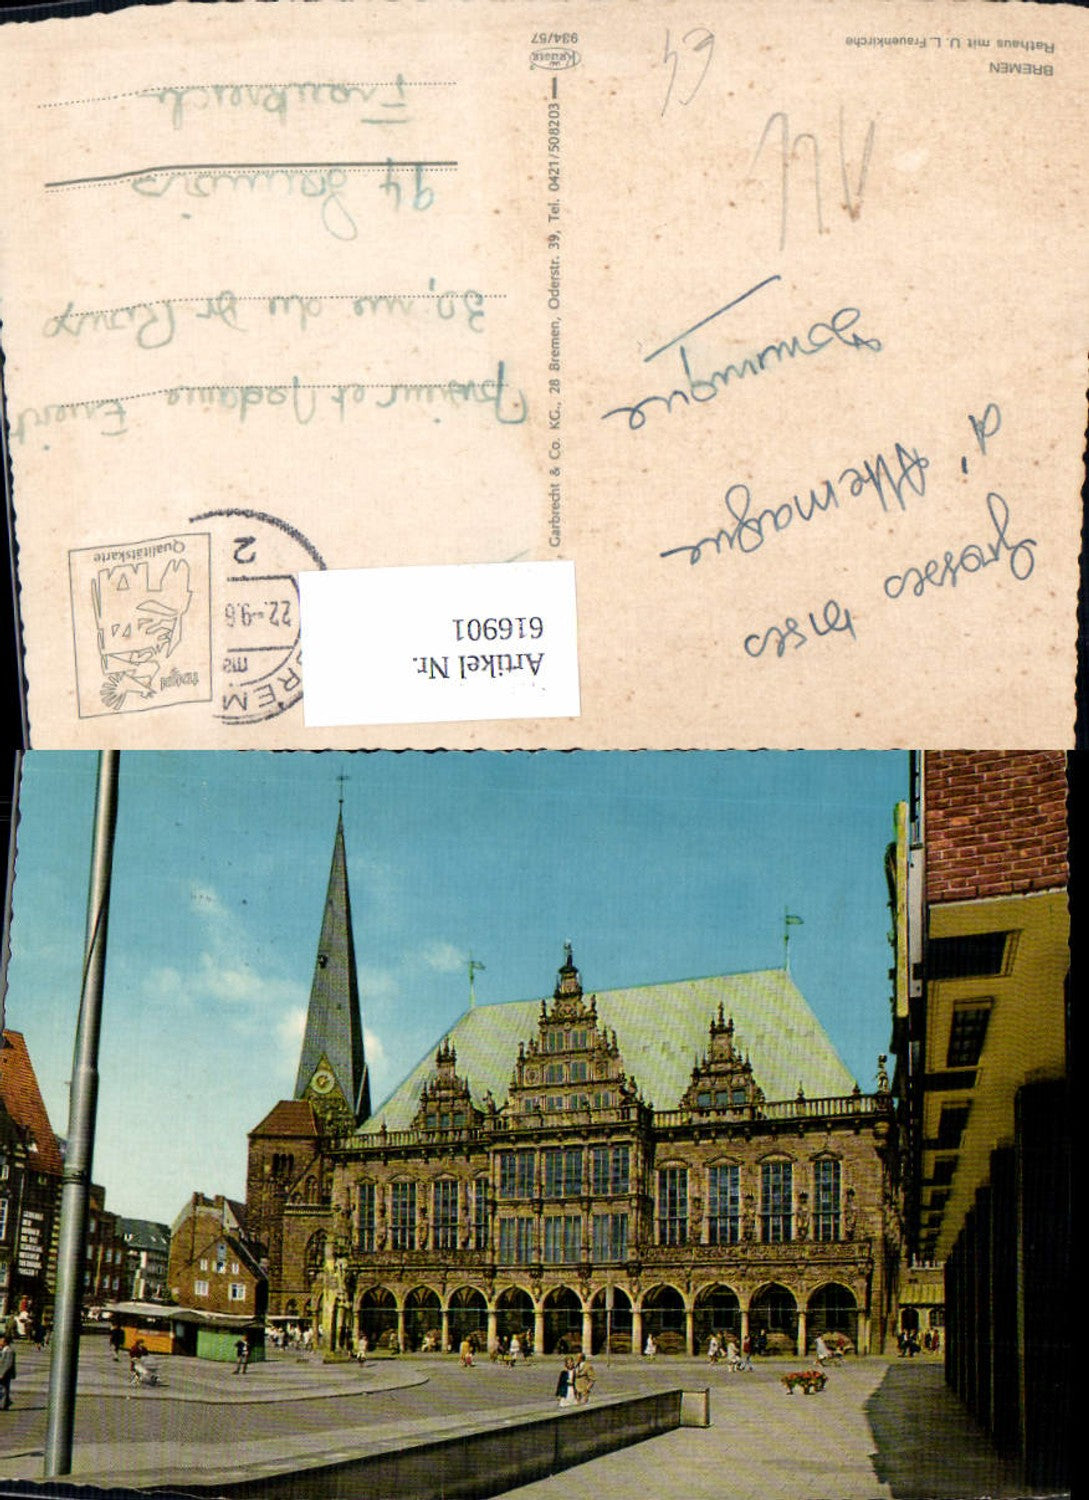 BREMEN
Rathaus mit U. L. Frauenkirche
Grosses bises
d'Allemagne
Dominique
Garbrecht & Co. KG., 28 Bremen, Oderstr. 39, Tel. 0421/508203
KRÜGER
934/57
Artikel Nr.
616901
BREM
22.-9.6
2
Qualitätskarte
et Madame
30, rue du Dr Roux
94
Frankreich